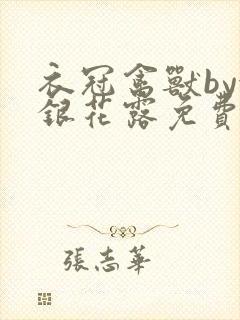 衣冠禽獸by
銀花露免費
張志華